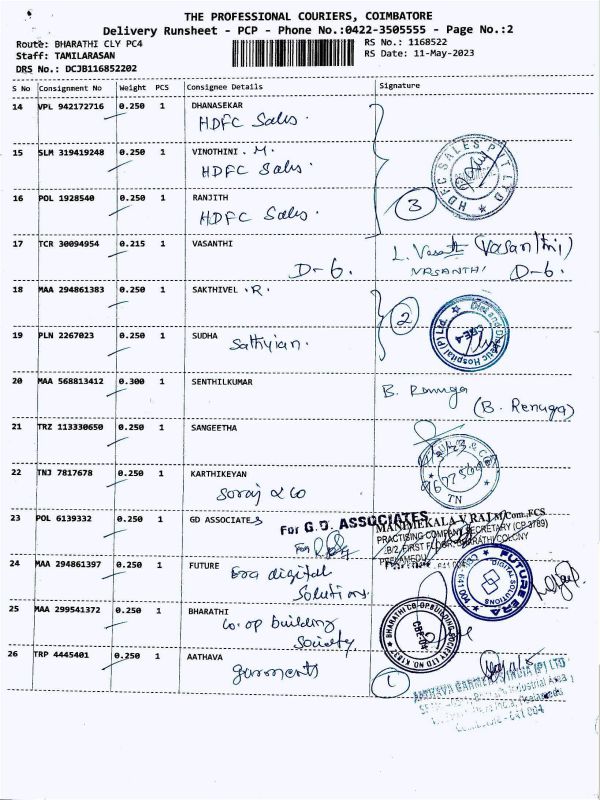 THE PROFESSIONAL COURIERS, COIMBATORE
Delivery Runsheet - PCP - Phone No.:0422-3505555 - Page No.:2
Route: BHARATHI CLY PC4 RS No.: 1168522
Staff: TAMILARASAN RS Date: 11-May-2023
DRS No.: DCJB116852202
S No Consignment No Weight PCS Consignee Details Signature
14 VPL 942172716 0.250 1 DHANASEKAR
HDFC Sales.
15 SLM 319419248 0.250 1 VINOTHINI . M.
HDFC Sales.
HDFC SALES PVT LTD
16 POL 1928540 0.250 1 RANJITH
HDFC Sales. 3
17 TCR 30094954 0.215 1 VASANTHI L. (Vasanthi)
D-6. VASANTHI D-6.
18 MAA 294861383 0.250 1 SAKTHIVEL . R.
2
Diabetic Hospital (P) Ltd
19 PLN 2267023 0.250 1 SUDHA
Sathyian.
20 MAA 568813412 0.300 1 SENTHILKUMAR B. Renuga
(B. Renuga)
21 TRZ 113330650 0.250 1 SANGEETHA
22 TNJ 7817678 0.250 1 KARTHIKEYAN
Soraj & Co
TN
23 POL 6139332 0.250 1 GD ASSOCIATES
For G.D. ASSOCIATES
MANIMEKALA V RAJ M.Com.,FCS
PRACTISING COMPANY SECRETARY (CP 3789)
FIRST FLOOR, BHARATHI COLONY
PEELAMEDU
24 MAA 294861397 0.250 1 FUTURE
Era digital
Solutions.
FUTURE ERA
DIGITAL SOLUTIONS
25 MAA 299541372 0.250 1 BHARATHI
Co.op building
Society
BHARATHI CO-OP BUILDING SOCIETY LTD
CBE-04
26 TRP 4445401 0.250 1 AATHAVA
garments 1
AATHAVA GARMENTS INDIA (P) LTD
Industrial Area
Coimbatore - 641 004